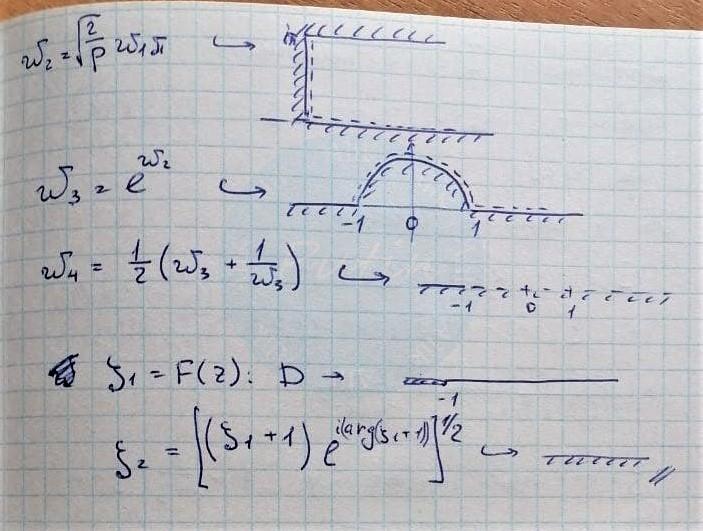 w₂ = √(2/p) w₁π ↪
iπ
w₃ = e^{w₂} ↪
-1 0 1
w₄ = 1/2 (w₃ + 1/w₃) ↪
-1 0 1
ξ₁ = F(z): D →
-1
ξ₂ = [(ξ₁+1) e^{i(arg(ξ₁+1))}]^{1/2} ↪ //